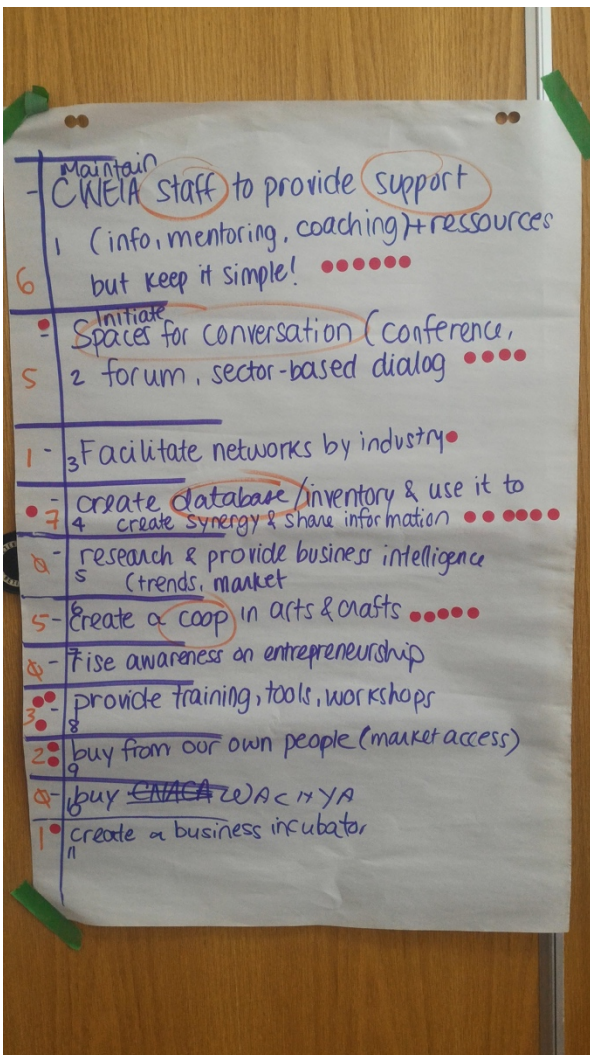 Maintain
- CWEIA staff to provide support
1 (info, mentoring, coaching)+ressources
6 but keep it simple!
Initiate
- Spaces for conversation (conference,
5 2 forum, sector-based dialog
1 - 3 Facilitate networks by industry
- create database/inventory & use it to
7 4 create synergy & share information
0 - research & provide business intelligence
5 (trends, market
5 - 6 Create a coop in arts & crafts
0 - 7 rise awareness on entrepreneurship
3 - provide training, tools, workshops
8
2 buy from our own people (market access)
9
0 - 10 buy CNACA WACHYA
1 create a business incubator
11